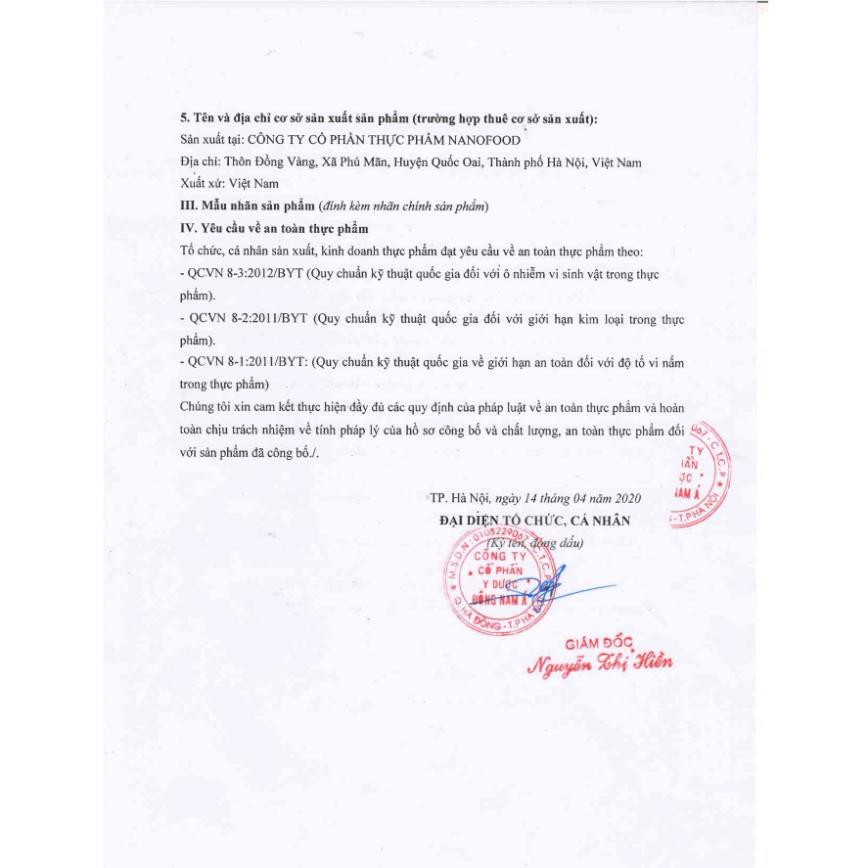 5. Tên và địa chỉ cơ sở sản xuất sản phẩm (trường hợp thuê cơ sở sản xuất):
Sản xuất tại: CÔNG TY CỔ PHẦN THỰC PHẨM NANOFOOD
Địa chỉ: Thôn Đồng Vàng, Xã Phú Mãn, Huyện Quốc Oai, Thành phố Hà Nội, Việt Nam
Xuất xứ: Việt Nam
III. Mẫu nhãn sản phẩm (đính kèm nhãn chính sản phẩm)
IV. Yêu cầu về an toàn thực phẩm
Tổ chức, cá nhân sản xuất, kinh doanh thực phẩm đạt yêu cầu về an toàn thực phẩm theo:
- QCVN 8-3:2012/BYT (Quy chuẩn kỹ thuật quốc gia đối với ô nhiễm vi sinh vật trong thực
phẩm).
- QCVN 8-2:2011/BYT (Quy chuẩn kỹ thuật quốc gia đối với giới hạn kim loại trong thực
phẩm).
- QCVN 8-1:2011/BYT: (Quy chuẩn kỹ thuật quốc gia về giới hạn an toàn đối với độ tố vi nấm
trong thực phẩm)
Chúng tôi xin cam kết thực hiện đầy đủ các quy định của pháp luật về an toàn thực phẩm và hoàn
toàn chịu trách nhiệm về tính pháp lý của hồ sơ công bố và chất lượng, an toàn thực phẩm đối
với sản phẩm đã công bố./.
067 - C.T.C.P
TY
ƯỢC
NAM Á
- T.P HÀ NỘI
TP. Hà Nội, ngày 14 tháng 04 năm 2020
ĐẠI DIỆN TỔ CHỨC, CÁ NHÂN
(Ký tên, đóng dấu)
M.S.D.N: 0105229067 - C.T.C.P
CÔNG TY
CỔ PHẦN
Y DƯỢC
ĐÔNG NAM Á
Q. HÀ ĐÔNG - T.P HÀ
GIÁM ĐỐC
Nguyễn Thị Hiền